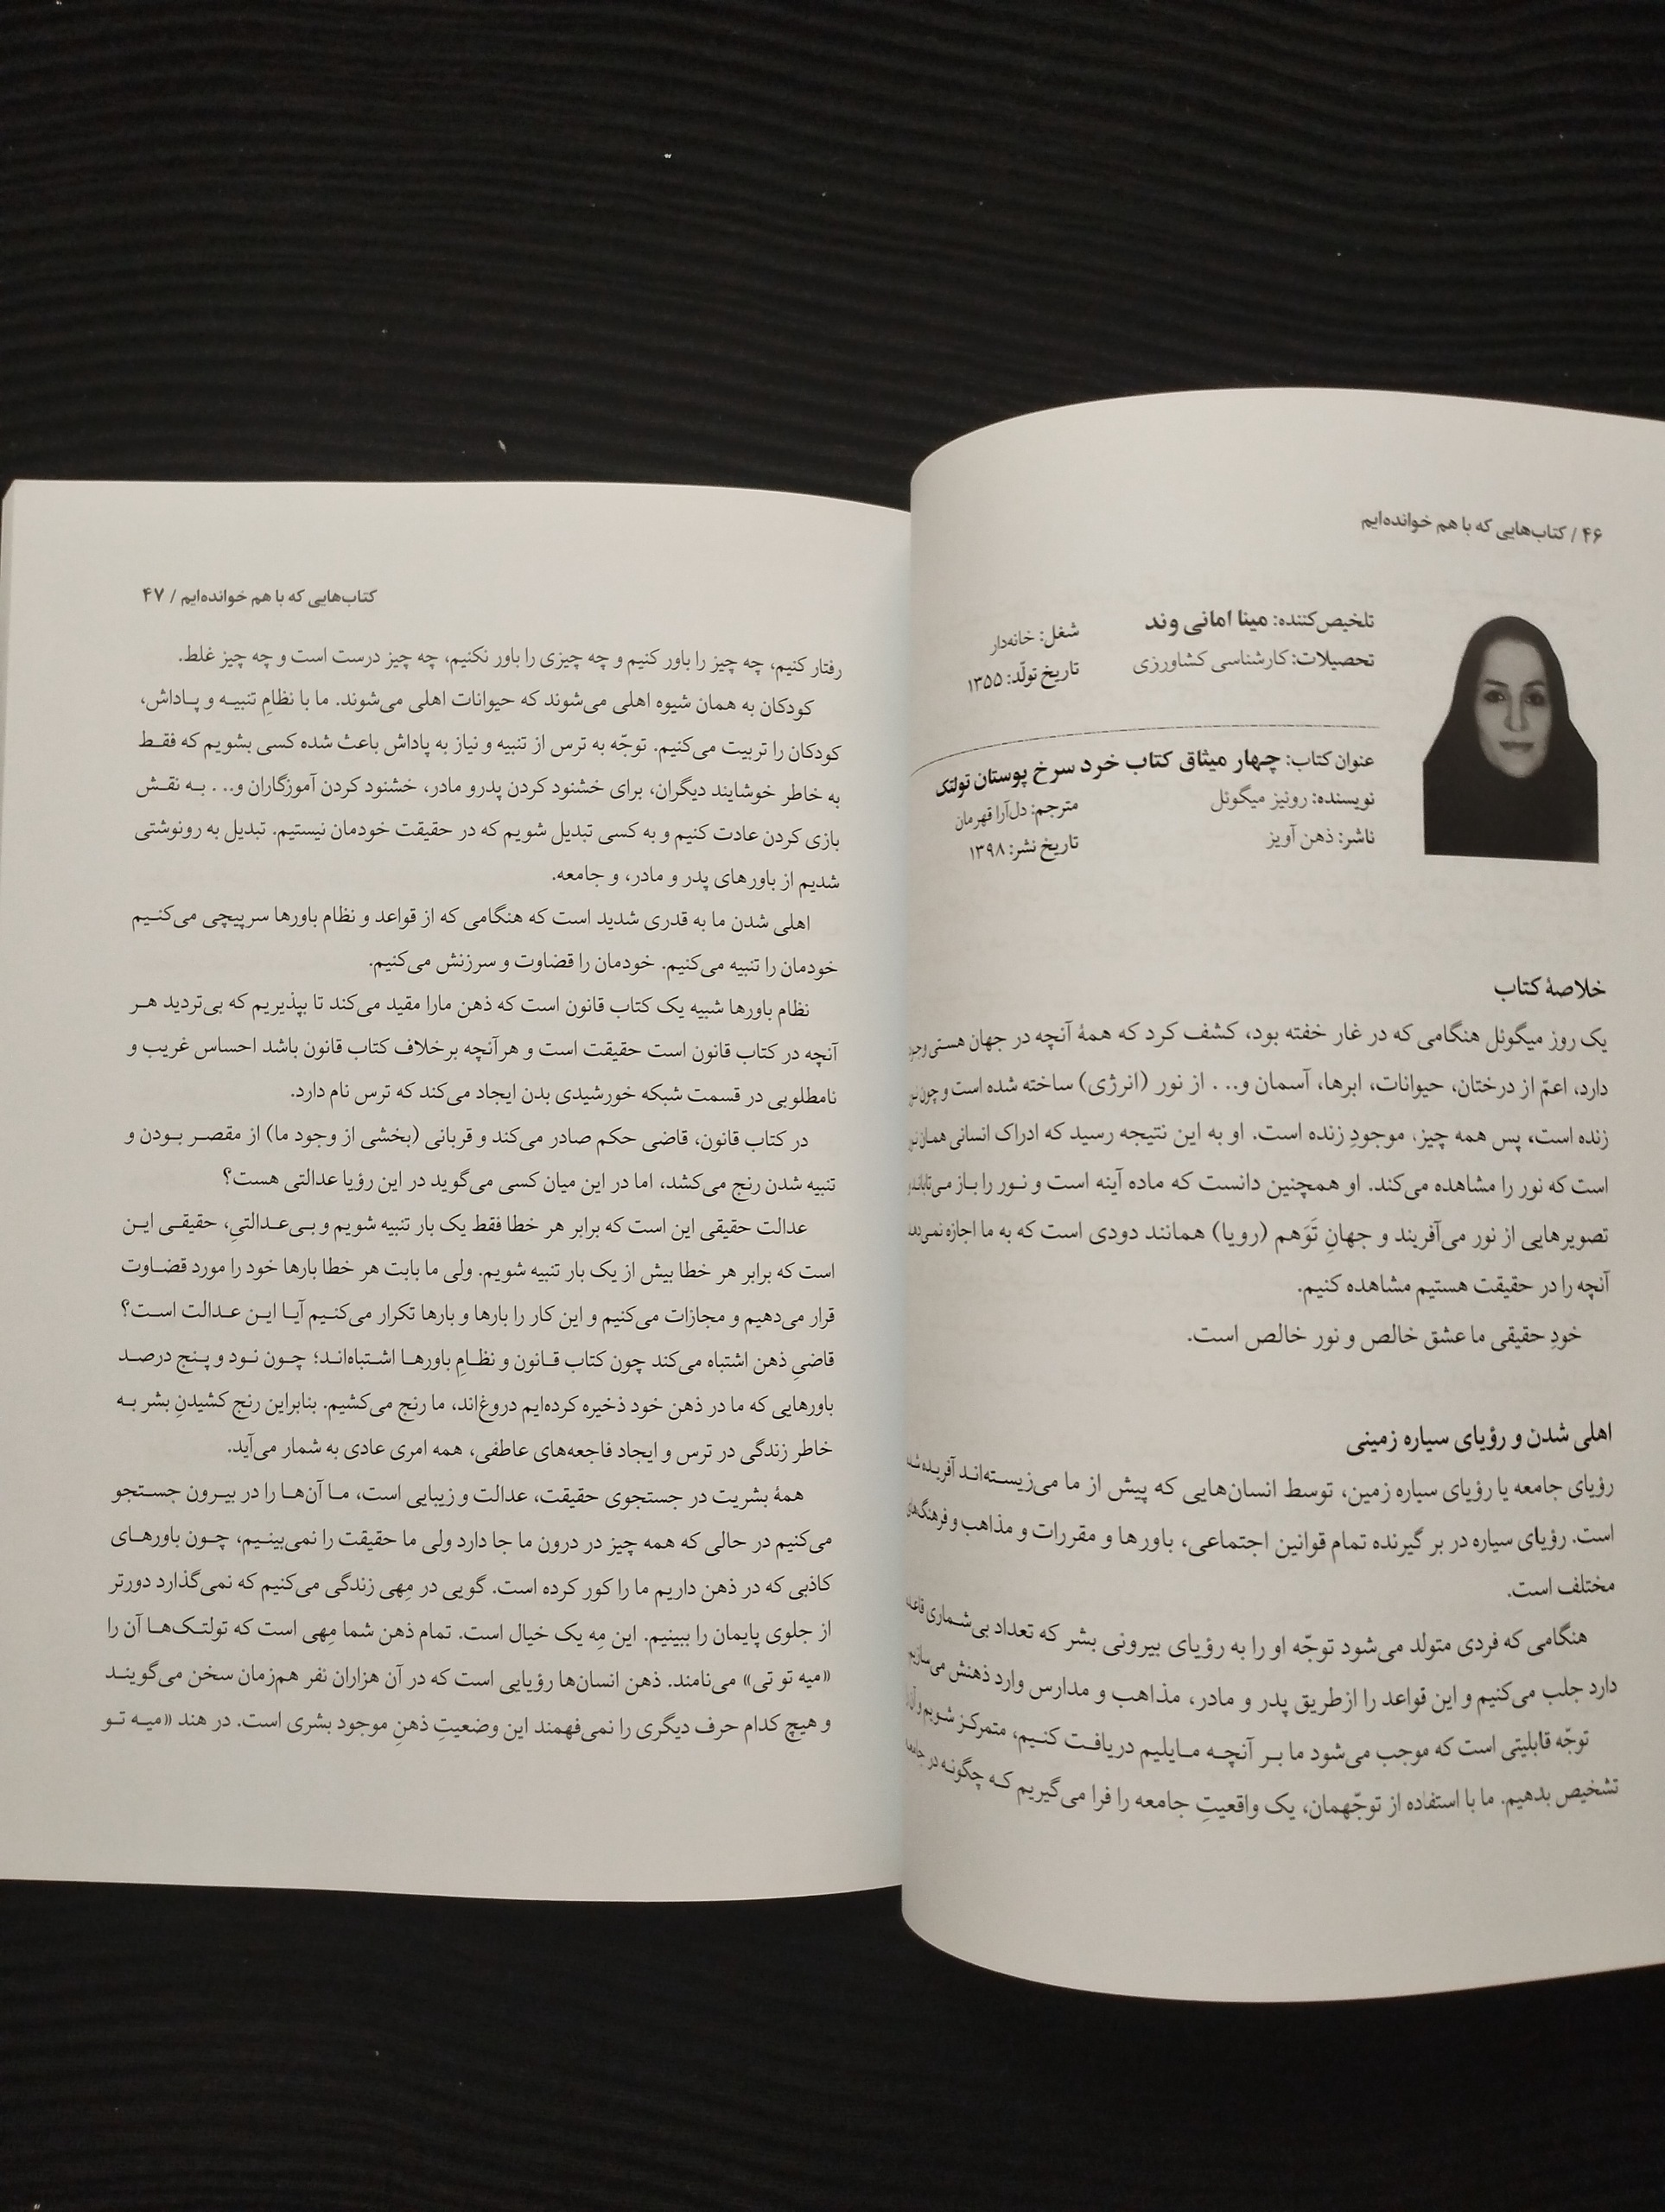 ۴۶ / کتاب‌هایی که با هم خوانده‌ایم
تلخیص‌کننده: مینا امانی وند
شغل: خانه‌دار
تحصیلات: کارشناسی کشاورزی
تاریخ تولّد: ۱۳۵۵
عنوان کتاب: چهار میثاق کتاب خرد سرخ پوستان تولتک
نویسنده: رونیز میگوئل
مترجم: دل‌آرا قهرمان
ناشر: ذهن آویز
تاریخ نشر: ۱۳۹۸
خلاصهٔ کتاب
یک روز میگوئل هنگامی که در غار خفته بود، کشف کرد که همهٔ آنچه در جهان هستی وجود
دارد، اعمّ از درختان، حیوانات، ابرها، آسمان و... از نور (انرژی) ساخته شده است و چون نور
زنده است، پس همه چیز، موجودِ زنده است. او به این نتیجه رسید که ادراک انسانی همان نور
است که نور را مشاهده می‌کند. او همچنین دانست که ماده آینه است و نور را باز می‌تاباند و
تصویرهایی از نور می‌آفریند و جهانِ تَوَهم (رویا) همانند دودی است که به ما اجازه نمی‌دهد
آنچه را در حقیقت هستیم مشاهده کنیم.
خودِ حقیقی ما عشق خالص و نور خالص است.
اهلی شدن و رؤیای سیاره زمینی
رؤیای جامعه یا رؤیای سیاره زمین، توسط انسان‌هایی که پیش از ما می‌زیسته‌اند آفریده شده
است. رؤیای سیاره در بر گیرنده تمام قوانین اجتماعی، باورها و مقررات و مذاهب و فرهنگ‌های
مختلف است.
هنگامی که فردی متولد می‌شود توجّه او را به رؤیای بیرونی بشر که تعداد بی‌شماری قاعده
دارد جلب می‌کنیم و این قواعد را ازطریق پدر و مادر، مذاهب و مدارس وارد ذهنش می‌سازیم.
توجّه قابلیتی است که موجب می‌شود ما بر آنچه مایلیم دریافت کنیم، متمرکز شویم و آن را
تشخیص بدهیم. ما با استفاده از توجّهمان، یک واقعیتِ جامعه را فرا می‌گیریم که چگونه در جامعه
کتاب‌هایی که با هم خوانده‌ایم / ۴۷
رفتار کنیم، چه چیز را باور کنیم و چه چیزی را باور نکنیم، چه چیز درست است و چه چیز غلط.
کودکان به همان شیوه اهلی می‌شوند که حیوانات اهلی می‌شوند. ما با نظامِ تنبیه و پاداش،
کودکان را تربیت می‌کنیم. توجّه به ترس از تنبیه و نیاز به پاداش باعث شده کسی بشویم که فقط
به خاطر خوشایند دیگران، برای خشنود کردن پدرو مادر، خشنود کردن آموزگاران و... به نقش
بازی کردن عادت کنیم و به کسی تبدیل شویم که در حقیقت خودمان نیستیم. تبدیل به رونوشتی
شدیم از باورهای پدر و مادر، و جامعه.
اهلی شدن ما به قدری شدید است که هنگامی که از قواعد و نظام باورها سرپیچی می‌کنیم
خودمان را تنبیه می‌کنیم. خودمان را قضاوت و سرزنش می‌کنیم.
نظام باورها شبیه یک کتاب قانون است که ذهن مارا مقید می‌کند تا بپذیریم که بی‌تردید هر
آنچه در کتاب قانون است حقیقت است و هرآنچه برخلاف کتاب قانون باشد احساس غریب و
نامطلوبی در قسمت شبکه خورشیدی بدن ایجاد می‌کند که ترس نام دارد.
در کتاب قانون، قاضی حکم صادر می‌کند و قربانی (بخشی از وجود ما) از مقصر بودن و
تنبیه شدن رنج می‌کشد، اما در این میان کسی می‌گوید در این رؤیا عدالتی هست؟
عدالت حقیقی این است که برابر هر خطا فقط یک بار تنبیه شویم و بی‌عدالتیِ، حقیقی این
است که برابر هر خطا بیش از یک بار تنبیه شویم. ولی ما بابت هر خطا بارها خود را مورد قضاوت
قرار می‌دهیم و مجازات می‌کنیم و این کار را بارها و بارها تکرار می‌کنیم آیا این عدالت است؟
قاضیِ ذهن اشتباه می‌کند چون کتاب قانون و نظامِ باورها اشتباه‌اند؛ چون نود و پنج درصد
باورهایی که ما در ذهن خود ذخیره کرده‌ایم دروغ‌اند، ما رنج می‌کشیم. بنابراین رنج کشیدنِ بشر به
خاطر زندگی در ترس و ایجاد فاجعه‌های عاطفی، همه امری عادی به شمار می‌آید.
همهٔ بشریت در جستجوی حقیقت، عدالت و زیبایی است، ما آن‌ها را در بیرون جستجو
می‌کنیم در حالی که همه چیز در درون ما جا دارد ولی ما حقیقت را نمی‌بینیم، چون باورهای
کاذبی که در ذهن داریم ما را کور کرده است. گویی در مِهی زندگی می‌کنیم که نمی‌گذارد دورتر
از جلوی پایمان را ببینیم. این مِه یک خیال است. تمام ذهن شما مِهی است که تولتک‌ها آن را
«میه تو تی» می‌نامند. ذهن انسان‌ها رؤیایی است که در آن هزاران نفر هم‌زمان سخن می‌گویند
و هیچ کدام حرف دیگری را نمی‌فهمند این وضعیتِ ذهنِ موجود بشری است. در هند «میه تو